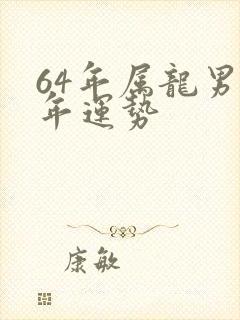 64年属龍男
年運势
康敏